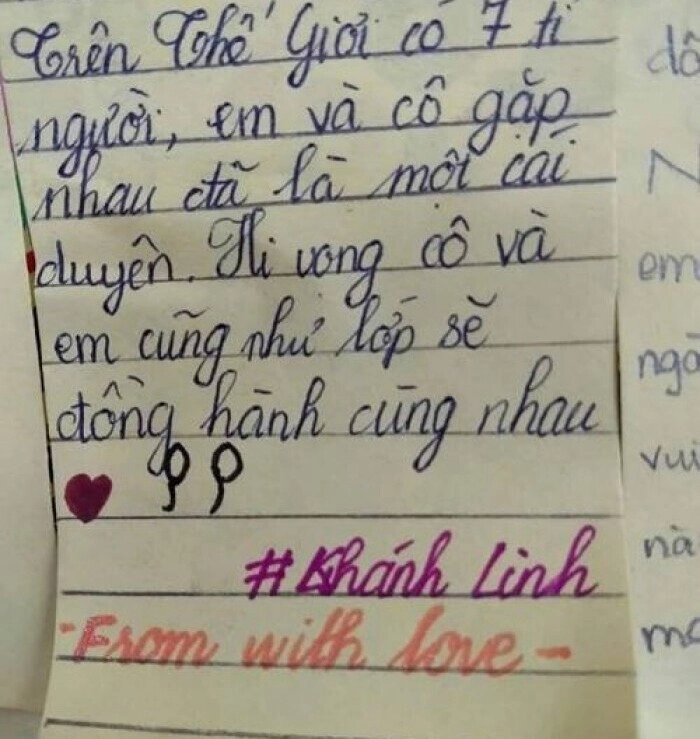 Trên Thế Giới có 7 tỉ
người, em và cô gặp
nhau đã là một cái
duyên. Hi vọng cô và
em cũng như lớp sẽ
đồng hành cùng nhau
#Khánh Linh
-From with love-
dô
N
em
ngà
vui
nà
mo